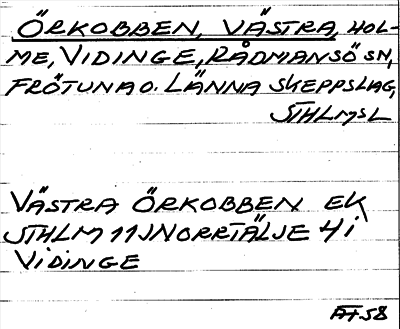 ÖRKOBBEN, VÄSTRA, HOL-
ME, VIDINGE, RÅDMANSÖ SN,
FRÖTUNA O. LÄNNA SKEPPSLAG,
STHLMS L
VÄSTRA ÖRKOBBEN EK
STHLM 11JNORRTÄLJE 4i
VIDINGE
AT 58